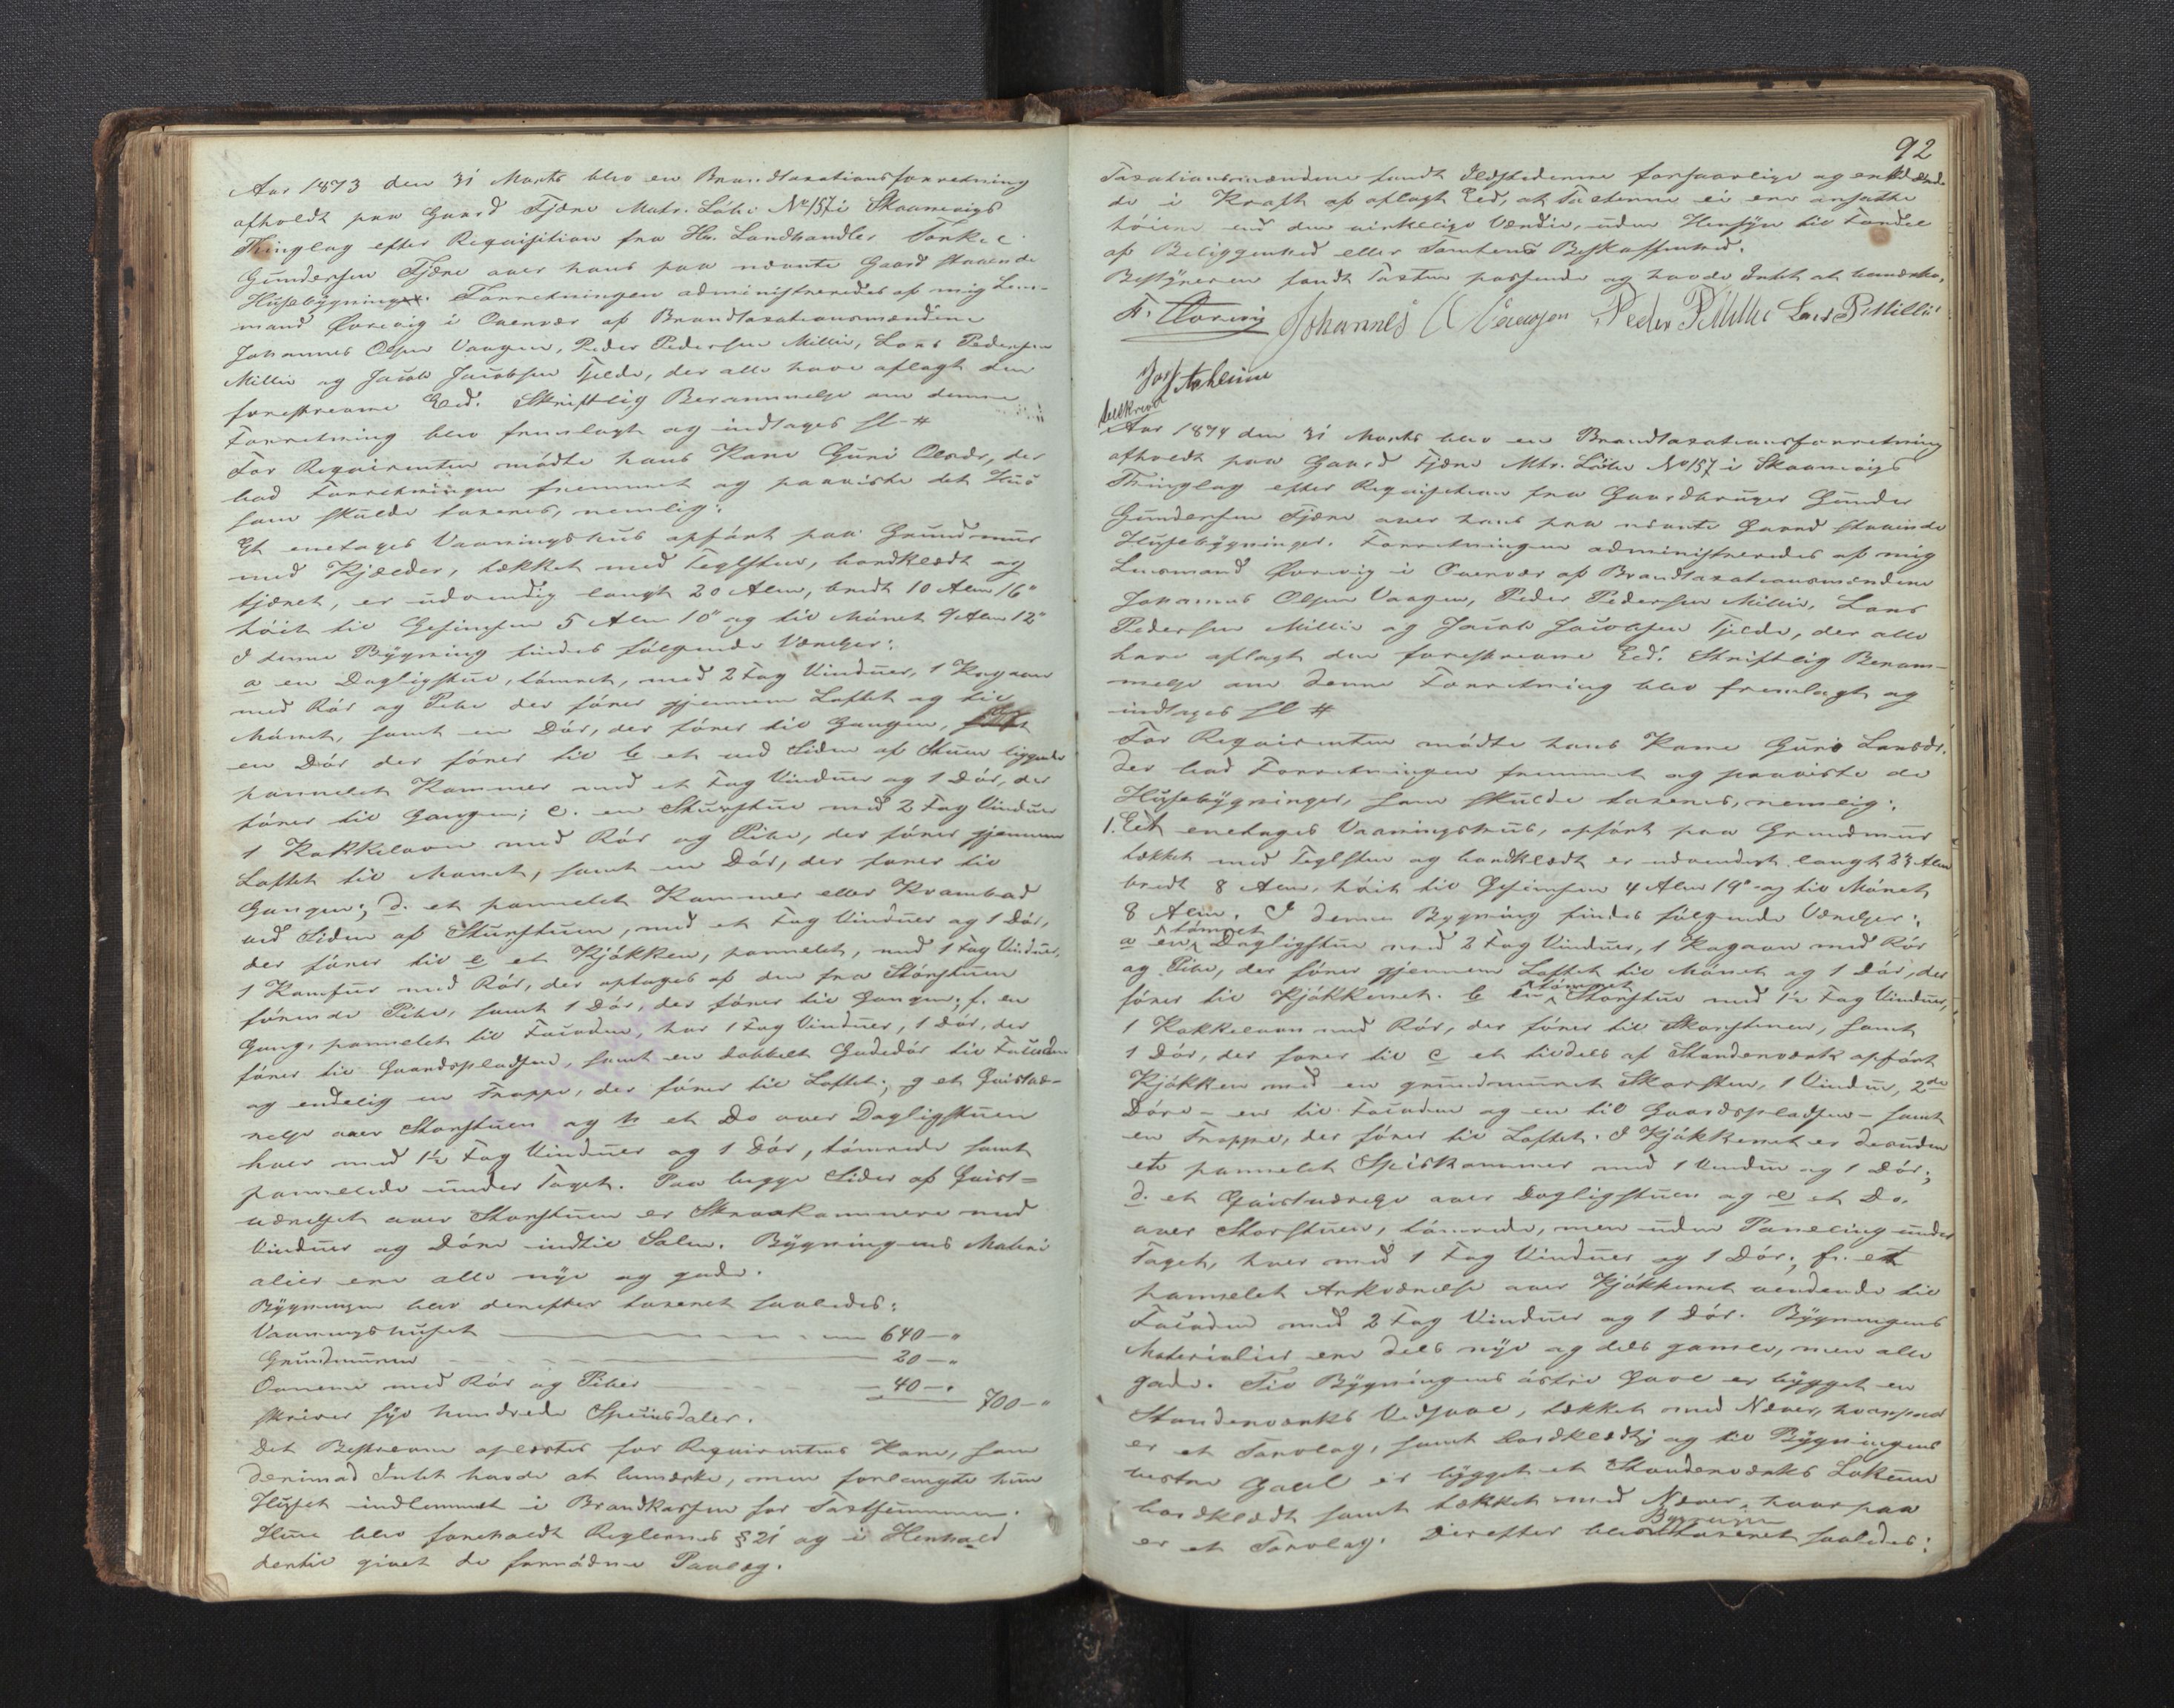 Aar 1873 den 31 Marts blev en Brandtaxationsforretning
afholdt paa Gaard Fjære Matr. Løbe No 157 i Skaanevigs
Thinglag efter Requisition fra Hr. Landhandler Torkel
Gundersen Fjære over hans paa nævnte Gaard staaende
Husebygning. Forretningen administreredes af mig Lens-
mand Qvrevig i Overvær af Brandtaxationsmændene
Johannes Olsen Vaagen, Peder Pedersen Millie, Lars Pedersen
Millie og Jacob Jacobsen Tjelde, der alle have aflagt den
foreskrevne Eed. Skriftlig Berammelse om denne
Forretning blev fremlagt og indtages sl #
For Requirenten mødte hans Kone Guri Olsdr, der
bad Forretningen fremmet og paaviste det Huus
som skulde taxeres, nemlig:
Et eenetages Vaaningshus opført paa Grundmuur
med Kjælder, tækket med Teglsten, bordklædt og
tjæret, er udvendig langt 20 Alen, bredt 10 Alen 16"
høit til Gesimsen 5 Alen 10" og til Mønet 9 Alen 12"
I denne Bygning findes følgende Værelser:
a en Dagligstue, tømret, med 2 Fag Vinduer, 1 Kogeovn
med Rør og Pibe der fører gjennem Loftet og til
Mønet, samt en Dør, der fører til Gangen,
en Dør der fører til b et ved Siden af Stuen liggende
pannelet Kammer med et Fag Vinduer og 1 Dør, der
fører til Gangen; c. en Storstue med 2 Fag Vinduer
1 Kakkelovn med Rør og Pibe, der fører gjennem
Loftet til Mønet, samt en Dør, der fører til
Gangen; d. et pannelet Kammer eller Krambod
ved Siden af Storstuen, med et Fag Vinduer og 1 Dør,
der fører til e et Kjøkken, pannelet, med 1 Fag Vinduer,
1 Komfur med Rør, der optages af den fra Storstuen
førende Pibe, samt 1 Dør, der fører til Gangen; f. en
Gang, pannelet til Facaden, har 1 Fag Vinduer, 1 Dør, der
fører til Gaardspladsen, samt en dobbelt Gadedør til Facaden
og endelig en Trappe, der fører til Loftet; g et Qvistvæ-
relse over Storstuen og h et Do over Dagligstuen
hver med 1½ Fag Vinduer og 1 Dør, tømrede samt
pannelede under Taget. Paa begge Sider af Qvist-
værelset over Storstuen er Skraakammere med
Vinduer og Døre indtil Salen. Bygningens Materi
alier ere alle nye og gode.
Bygningen blev derefter taxeret saaledes:
Vaaningshuset 640 – "
Grundmuren 20 – "
Ovnene med Rør og Piber 40 – " 700 – "
skriver syv hundrede Speciesdaler.
Det Beskrevne oplæstes for Requirentens Kone, som
derimod Intet havde at bemærke, men forlangte hun
Huset indlemmet i Brandkassen for Taxtsummen.
Hun blev foreholdt Reglernes § 21 og i Henhold
dertil givet de fornødne Paalæg.
92
Taxationsmændene fandt Ildstederne forsvarlige og erklærede
de i Kraft af aflagt Eed, at Taxterne ei ere ansatte
høiere end den virkelige Værdie, uden Hensyn til Fordel
af Beliggenhed eller Tomtens Beskaffenhed.
Bestyreren fandt Taxten passende og havde Intet at bemærke.
Johannes O Vaagen Peder P Millie Lars P. Millie
Aar 1874 den 31 Marts blev en Brandtaxationsforretning
afholdt paa Gaard Fjære Mtr. Løbe No 157 i Skaanevigs
Thinglag efter Requisition fra Gaardbruger Gunder
Gundersen Fjære over hans paa nævnte Gaard staaende
Husebygninger. Forretningen administreredes af mig
Lensmand Qvrevig i Overvær af Brandtaxationsmændene
Johannes Olsen Vaagen, Peder Pedersen Millie, Lars
Pedersen Millie og Jacob Jacobsen Tjelde, der alle
have aflagt den foreskrevne Eed. Skriftlig Beram-
melse om denne Forretning blev fremlagt og
indtages sl #
For Requirenten mødte hans Kone Guri Larsdr.
der bad Forretningen fremmet og paaviste de
Husebygninger, som skulde taxeres, nemlig:
1. Eet eenetages Vaaningshus, opført paa Grundmuur
tækket med Teglsten og bordklædt er udvendigt langt 23 Alen
bredt 8 Alen, høit til Gesimsen 4 Alen 19" og til Mønet
8 Alen. I denne Bygning findes følgende Værelser:
tømret
a en Dagligstue med 2 Fag Vinduer, 1 Kogeovn med Rør
og Pibe, der fører gjennem Loftet til Mønet og 1 Dør, der
tømret
fører til Kjøkkenet. b en Storstue med 1½ Fag Vinduer,
1 Kakkelovn med Rør, der fører til Skorstenen, samt
1 Dør, der fører til c et tildels af Standerværk opført
Kjøkken med en grundmuret Skorsten, 1 Vindue, 2de
Døre – en til Facaden og en til Gaardspladsen – samt
en Trappe, der fører til Loftet. I Kjøkkenet er desuden
et pannelet Spiskammer med 1 Vindue og 1 Dør;
d. et Qvistværelse over Dagligstuen og e et Do.
over Storstuen, tømrede, men uden Paneling under
Taget, hver med 1 Fag Vinduer og 1 Dør; f. et
pannelet Arkværelse over Kjøkkenet vendende til
Facaden med 2 Fag Vinduer og 1 Dør. Bygningens
Materialier ere dels nye og dels gamle, men alle
gode. Til Bygningens østre Gavl er bygget en
Standerværks Vedskaal, tækket med Næver, hvorpaa
er et Torvlag, samt bordklædt; og til Bygningens
vestre Gavl er bygget et Standerværks Lokum
bordklædt samt tækket med Næver, hvorpaa
Bygningen
er et Torvlag. Derefter blev taxeret saaledes: